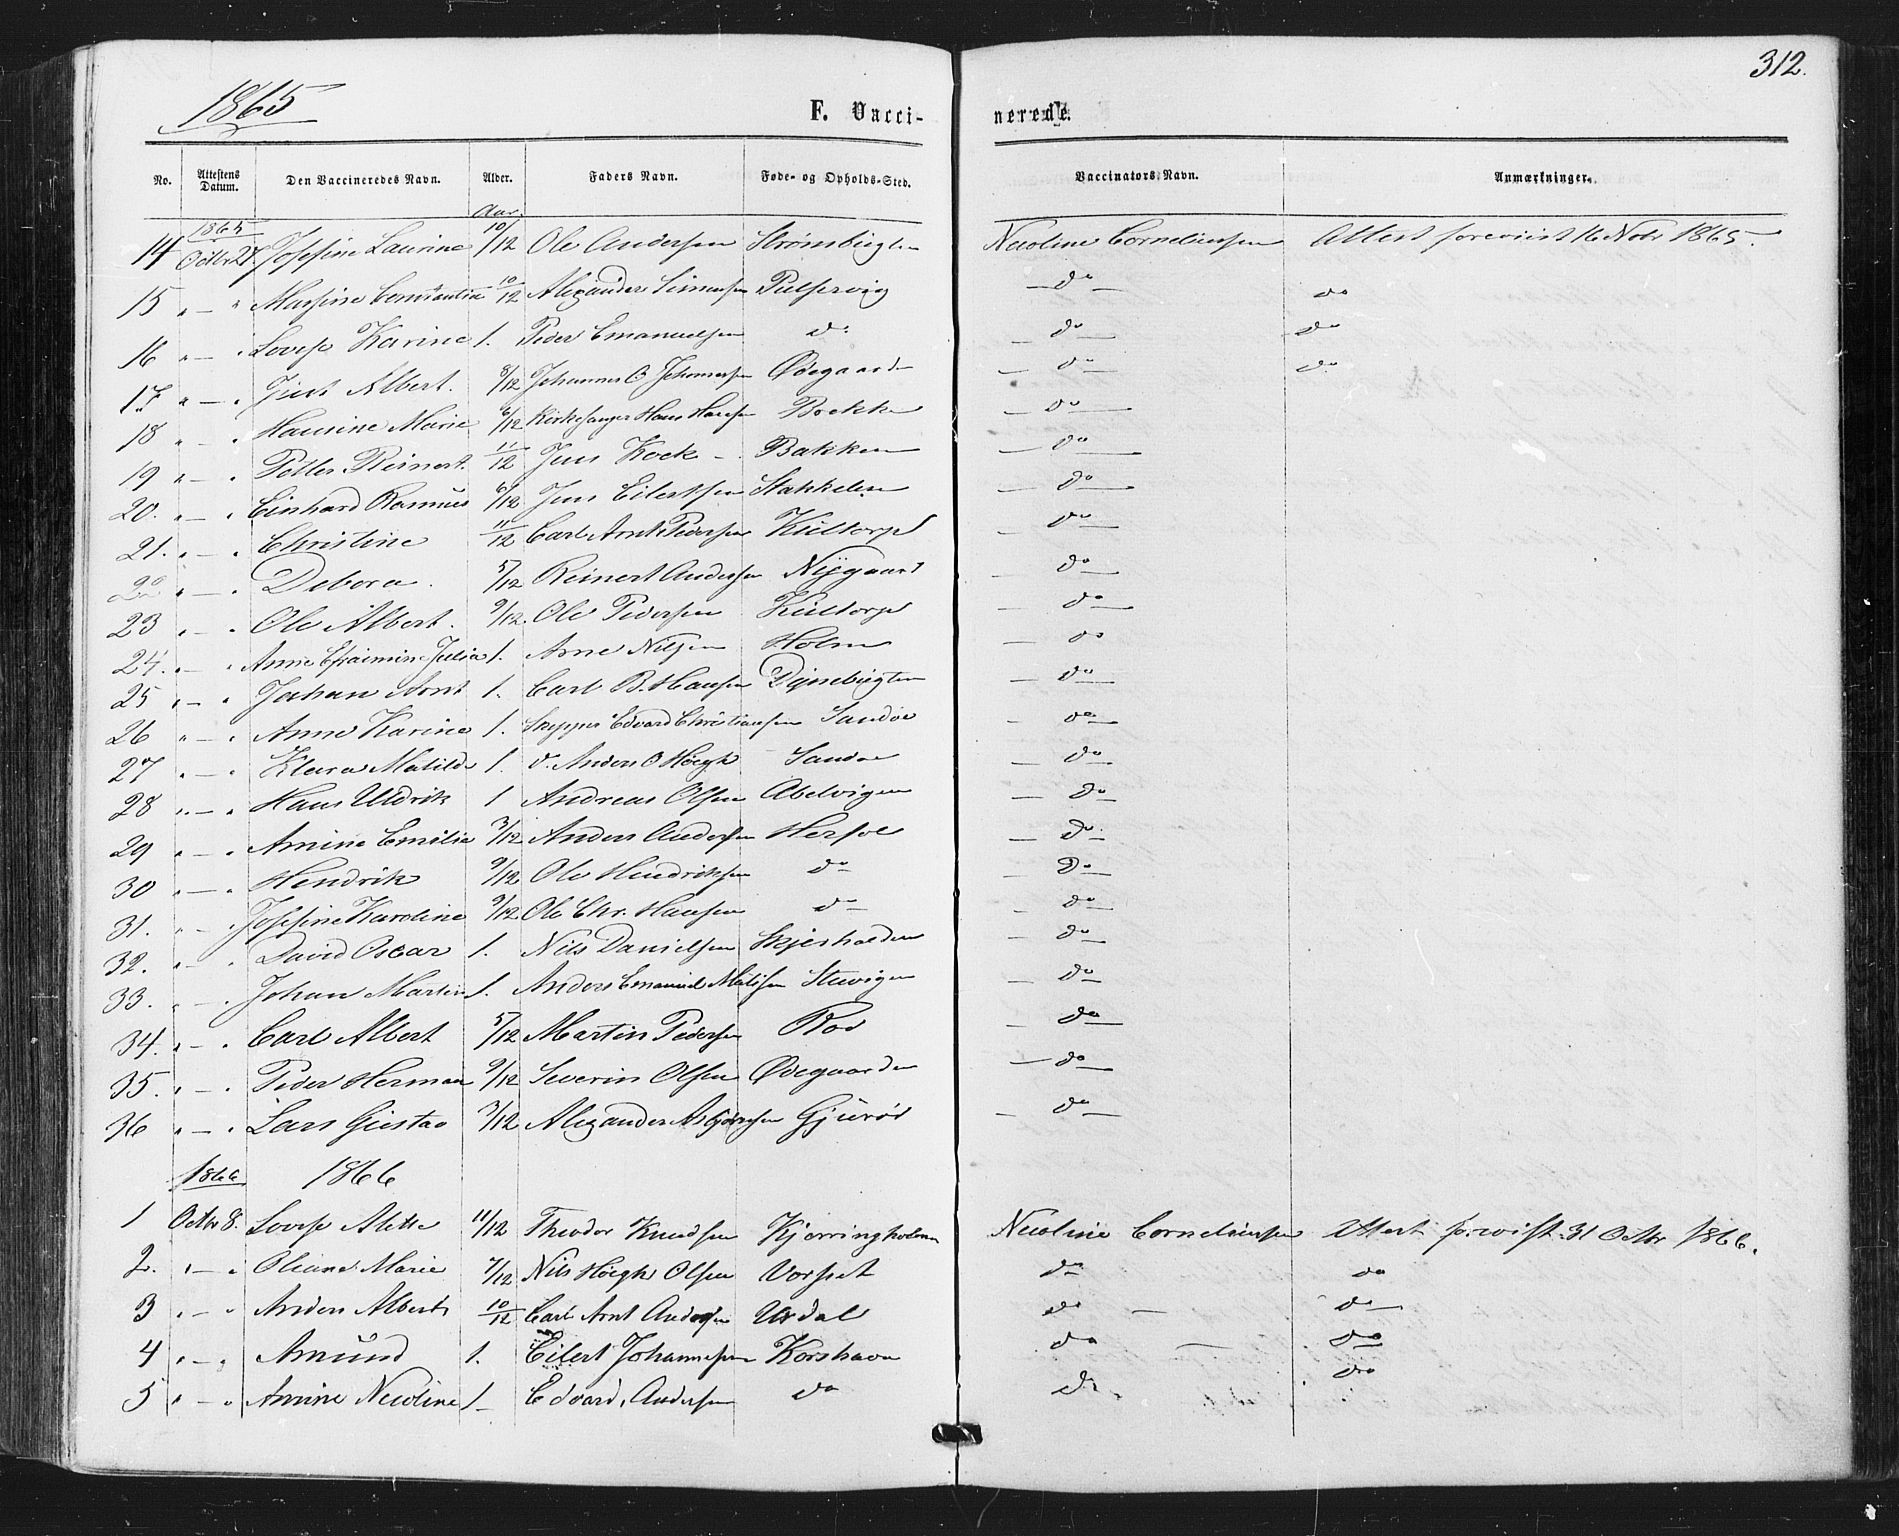 312.
1865
F. Vacci-nerede.
No. Attestens Datum. Den Vaccineredes Navn. Alder. Faders Navn. Føde- og Opholds-Sted. Vaccinators Navn. Anmærkninger.
1865 Aar.
14 Octbr 27. Josefine Laurine 10/12 Ole Andersen Strømsbugten Nicoline Corneliussen Attest forevist 16 Nobr 1865.
15 " — " Constantia 10/12 Alexander Simensen Pulservig — do — do
16 " — " Lovise Karine 1. Peder Emanuelsen do — do — do
17 " — " Just Albert. 8/12 Johannes O. Johannesen Ødegaarden — do — do
18 " — " Hansine Marie 6/12 Kirkesanger Hans Hansen Brekke — do —
19 " — " Petter Reinert. 11/12 Jens Kock — Bakken — do —
20. " — " Einhard Rasmus 6/12 Jens Eilertsen Stakkelen — do —
21. " — " Christine 11/12 Carl Arnt Pedersen Kiltorp — do —
22 " — " Debora. 5/12 Reinert Andersen Nygaard — do —
23 " — " Ole Albert. 9/12. Ole Pedersen Kiltorp — do —
24. " — " Anne Efraimine Julia 1. Arne Nilsen Holm — do
25 " — " Johan Arnt 1. Carl B. Hansen Dynebugten — do —
26 " — " Anne Karine 1. Skipper Edvard Christiansen Sandøe — do —
27 " — " Klara Matilde 1. d. Anders O Høegh Sandøe — do —
28 " — " Hans Uldrik 1 Andreas Olsen Abelvigen — do —
29 " — " Amine Emilie 3/12 Anders Andersen Hersøe — do. —
30 " — " Hendrik 9/12 Ole Hendriksen do — Do —
31. " — " Josefine Karoline 9/12 Ole Chr. Hansen do — do —
32. " — " David Oscar 1. Nils Danielsen Skjesholden — do —
33. " — " Johan Martin 1. Anders Emanuel Stuvigen — do —
34. " — " Carl Albert 5/12 Martin Pedersen Rød — do —
35. " — " Peder Herman 9/12 Severin Olsen Ødegaarden — do —
36 " — " Lars Gustav 3/12 Alexander Asbjørnsen Gjurød — do —
1866 1866
1 Octbr 8. Lovise Alette 11/12 Theodor Knudsen Kjerringholmen Nicoline Corneliussen Attest forevist 31 Octbr 1866.
2. " — " Oliane Marie 7/12 Nils Høegh Olsen Vorpet do — do
3 " — " Anders Albert 10/12 Carl Arnt Andersen Urdal do — do —
4 " — " Amund 1. Eilert Johannesen Korshavn do — do
5 " — " Amine Nicoline 1 — Edvard Andersen do do do